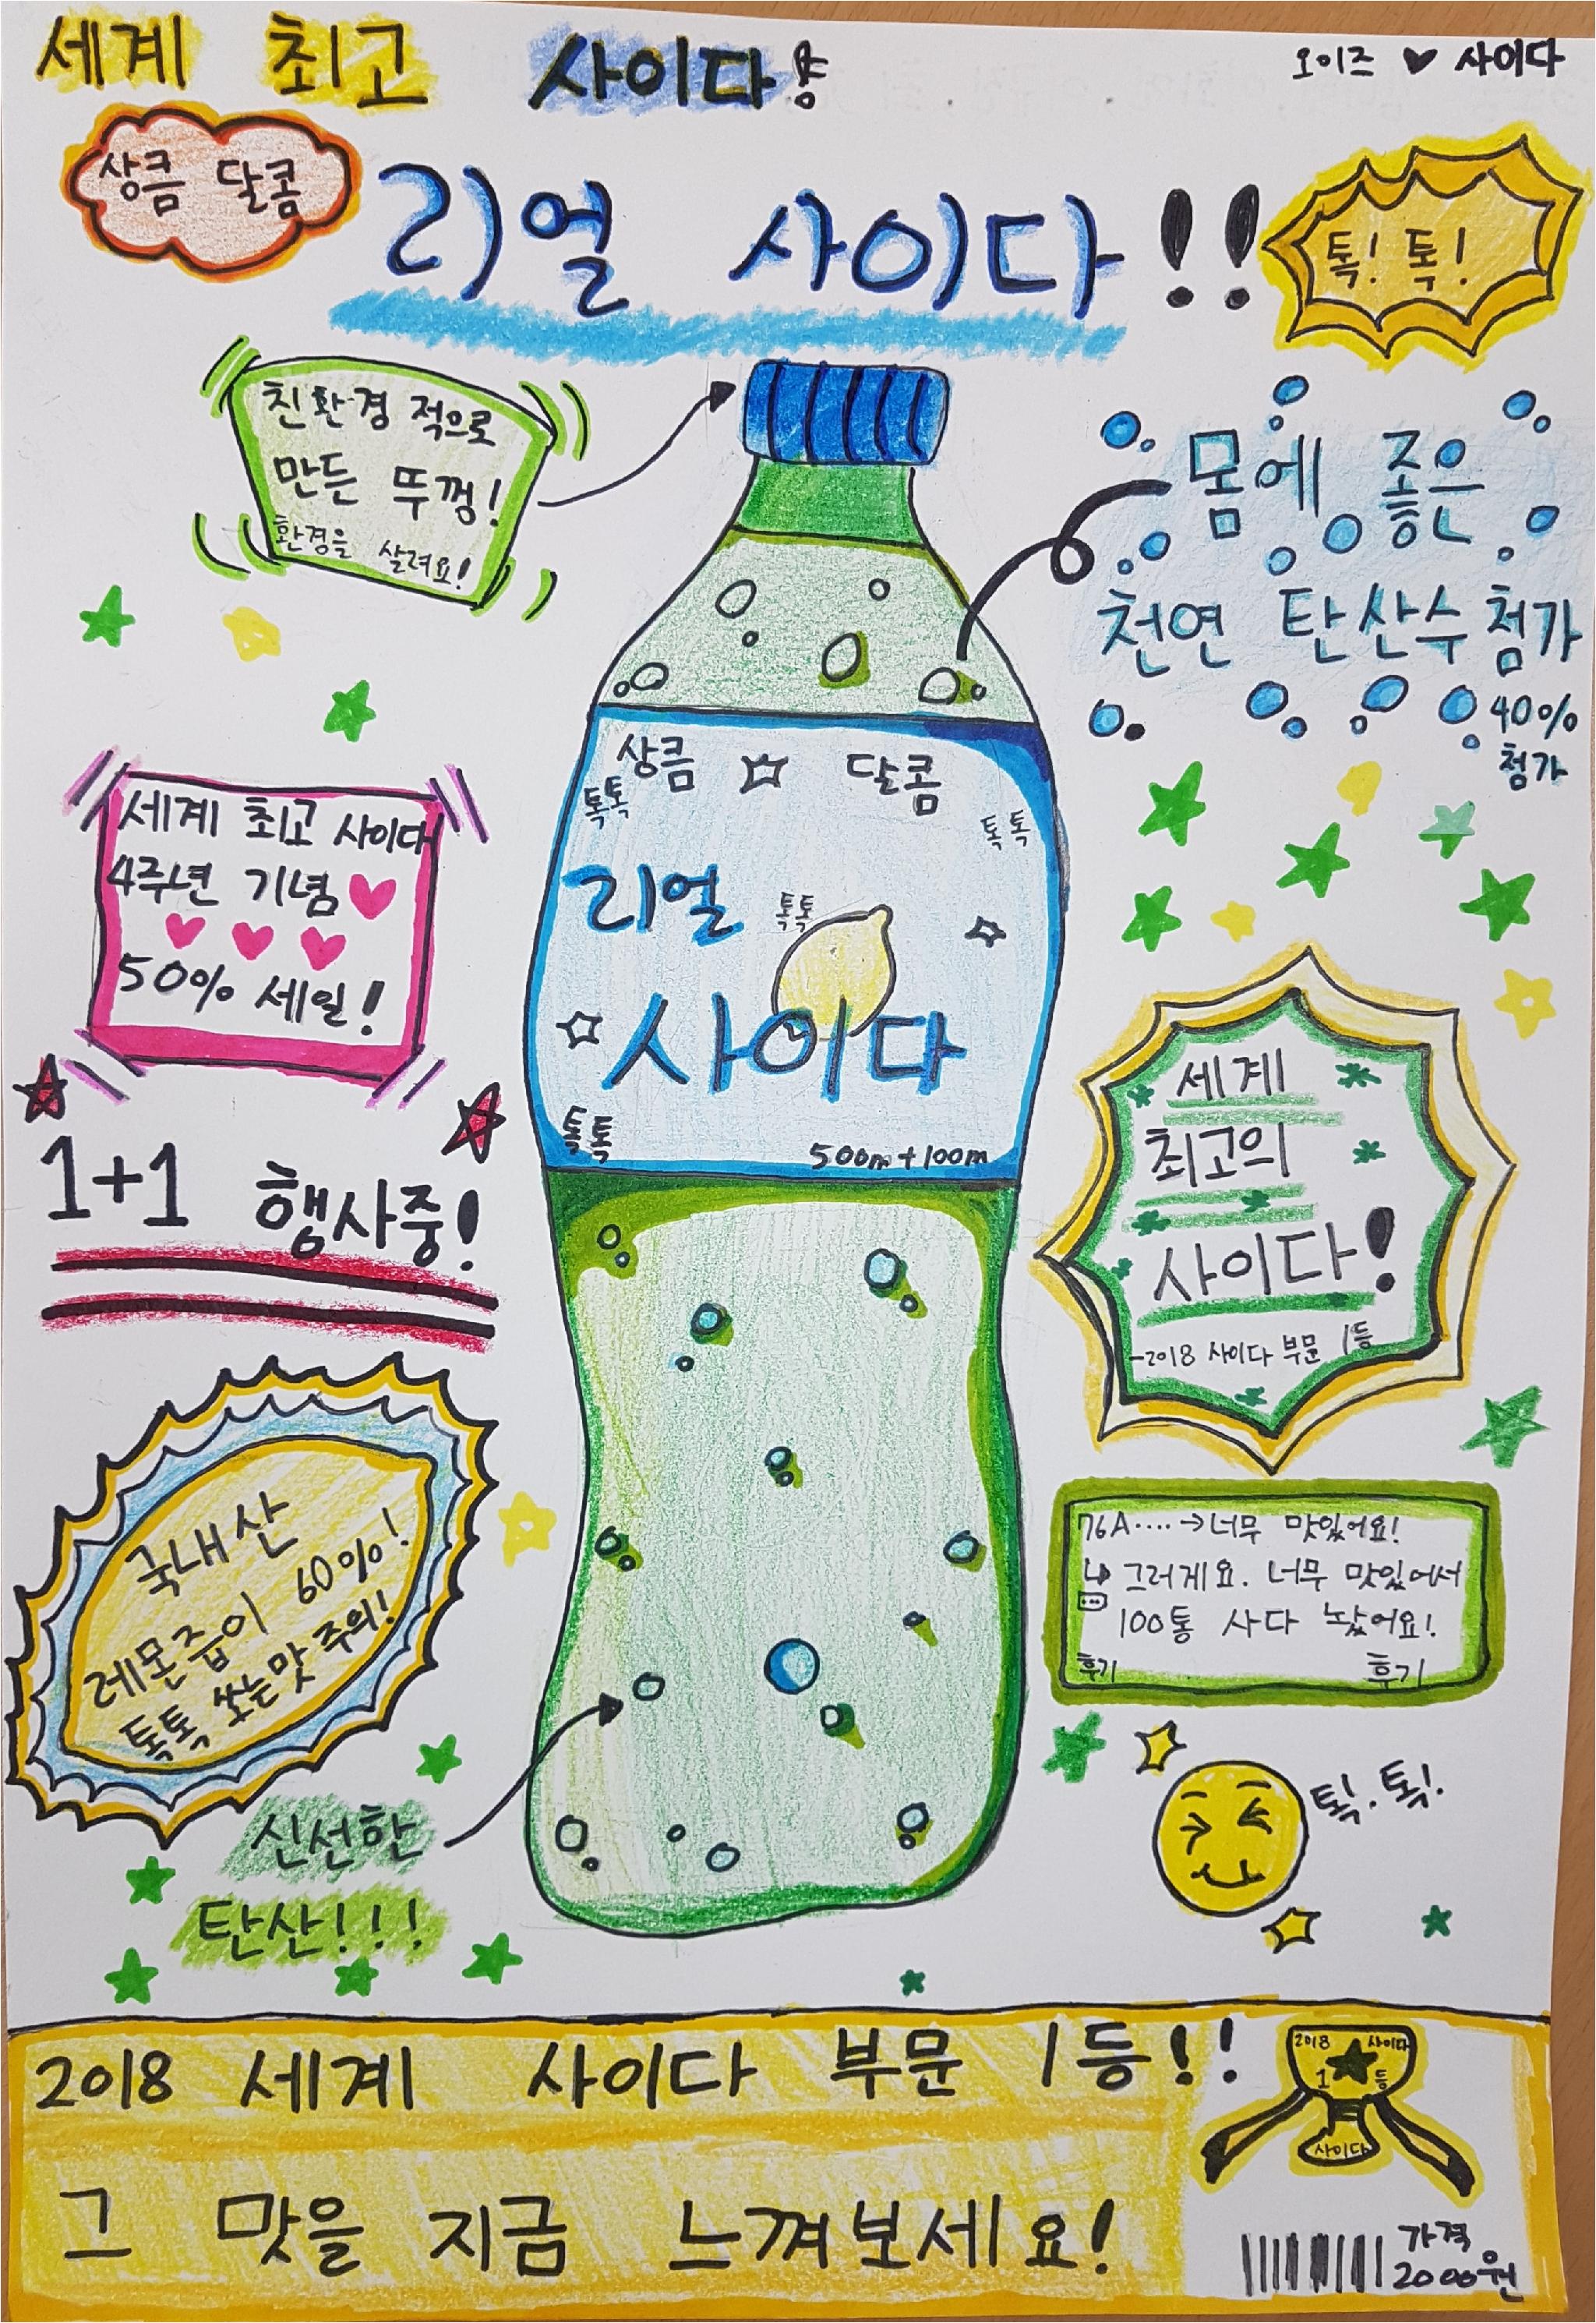 세계 최고 사이다!
오이즈 ♥ 사이다
상큼 달콤
리얼 사이다!!
톡! 톡!
친환경적으로
만든 뚜껑!
환경을 살려요!
몸에 좋은
천연 탄산수 첨가
40%
첨가
상큼 달콤
톡톡
톡톡
리얼
톡톡
사이다
톡톡
500m+100m
세계 최고 사이다
4주년 기념
50% 세일!
1+1 행사중!
세계
최고의
사이다!
-2018 사이다 부문 1등
국내산
레몬즙이 60%!
톡톡 쏘는맛 주의!
76A····→너무 맛있어요!
↳ 그러게요. 너무 맛있어서
100통 사다 놨어요!
후기 후기
신선한
탄산!!!
톡!. 톡!.
2018 세계 사이다 부문 1등!!
그 맛을 지금 느껴보세요!
2018 사이다
1 등
사이다
가격
2000원